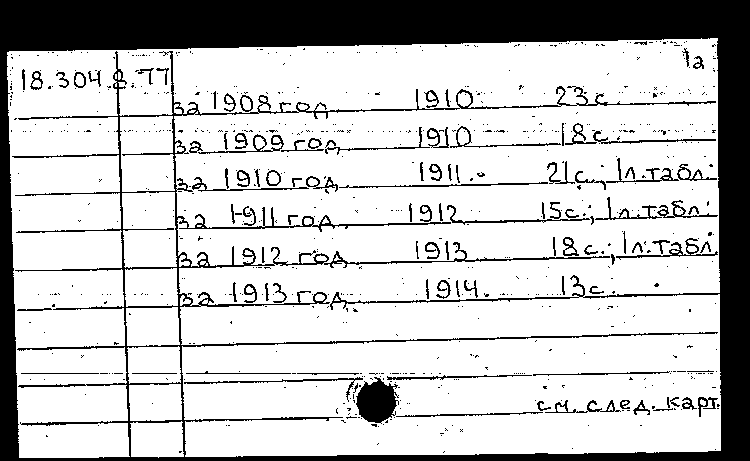 18.304.8.77 1а
за 1908 год 1910 23 с.
за 1909 год 1910 18 с.
за 1910 год 1911. 21 с.; 1 л. табл.
за 1911 год 1912 15 с.; 1 л. табл.
за 1912 год 1913 18 с.; 1 л. табл.
за 1913 год 1914. 13 с.
см. след. карт.